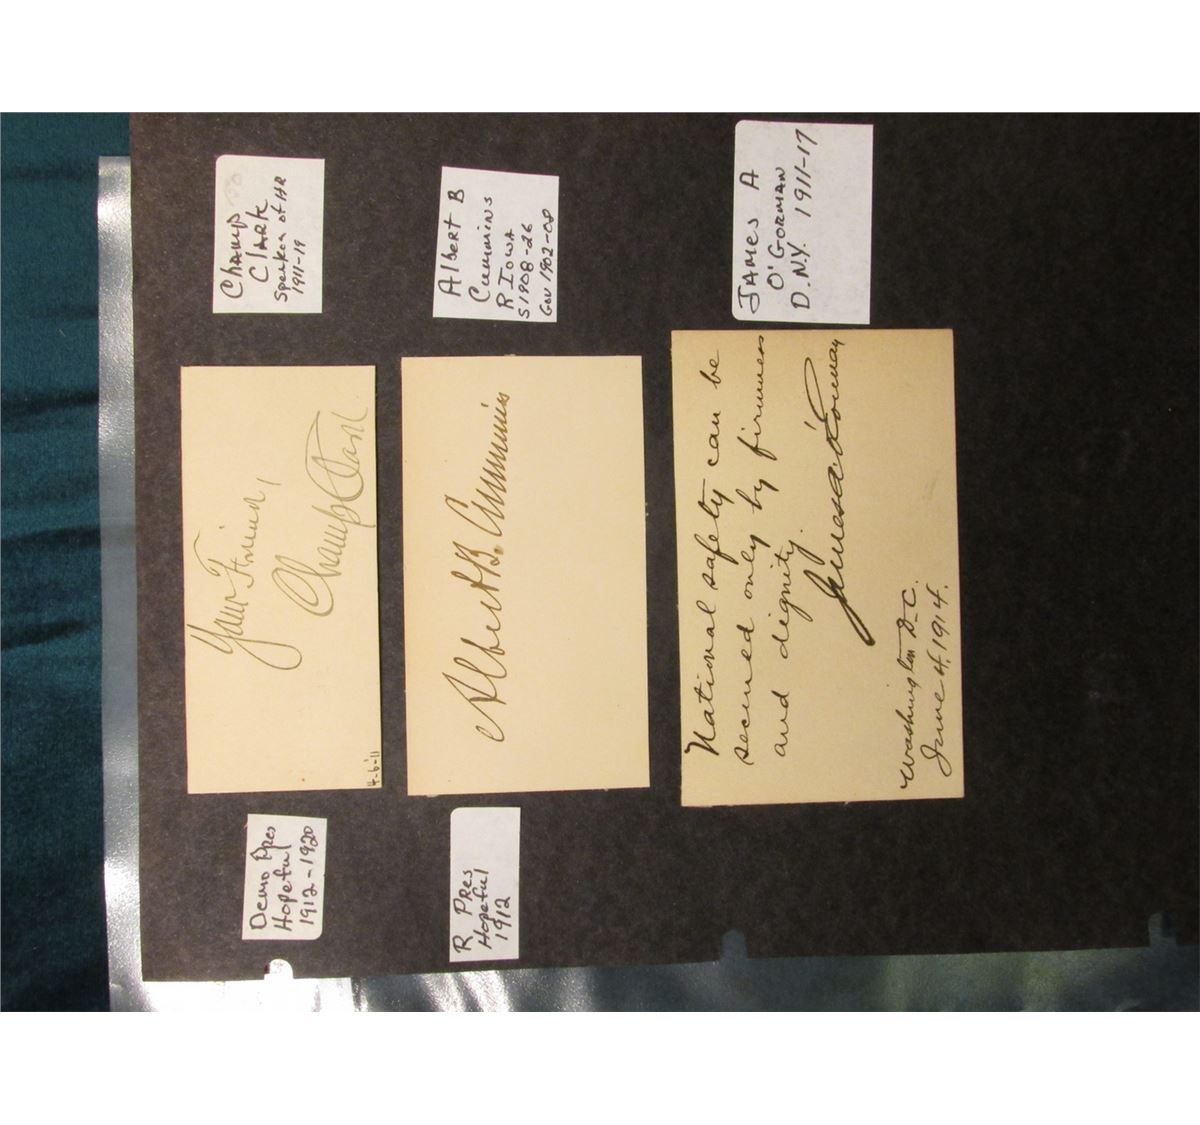 Demo Pres
Hopeful
1912-1920
Your Friend,
Champ Clark.
4-6-11
Champ
Clark
Speaker of HR
1911-19
R Pres
Hopeful
1912
Albert B. Cummins
Albert B
Cummins
R Iowa
S 1908-26
Gov 1902-08
National safety can be
secured only by firmness
and dignity.
James A O'Gorman
Washington D-C.
June 4, 1914.
James A
O'Gorman
D.N.Y. 1911-17